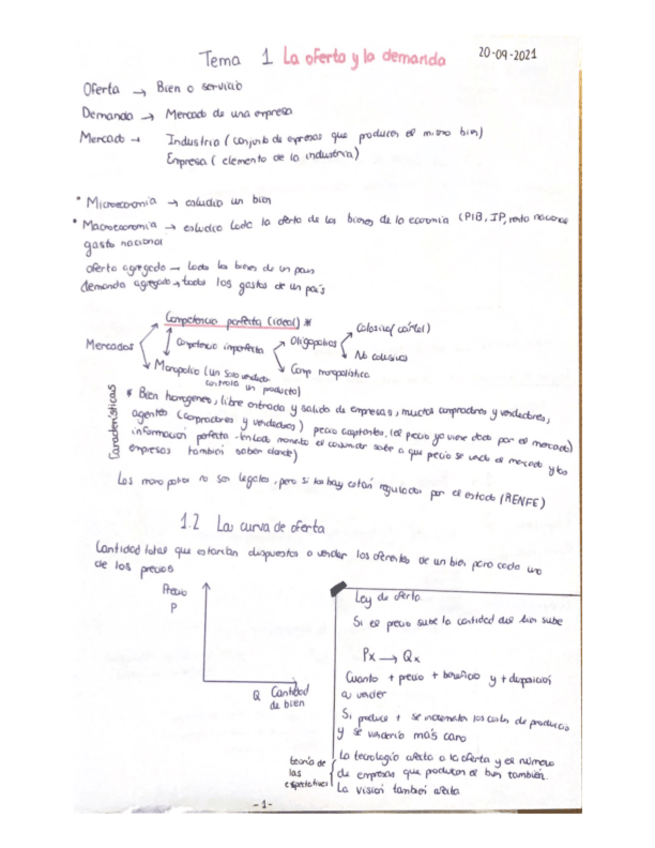 Tema 1 La oferta y la demanda
20-09-2021
Oferta → Bien o servicio
Demanda → Mercado de una empresa
Mercado → Industria (conjunto de empresas que producen el mismo bien)
Empresa (elemento de la industria)
* Microeconomía → estudia un bien
* Macroeconomía → estudia toda la oferta de los bienes de la economía (PIB, IP, renta nacional
gasto nacional
oferta agregada → todos los bienes de un país
demanda agregada → todos los gastos de un país
Mercados
Competencia perfecta (ideal) *
Competencia imperfecta
Oligopolios
Colusivo (cártel)
No colusivos
Comp monopolística
Monopolio (un solo vendedor
controla un producto)
Características
* Bien homogéneo, libre entrada y salida de empresas, muchos compradores y vendedores,
agentes (compradores y vendedores) precio aceptantes, (el precio ya viene dado por el mercado)
información perfecta - en todo momento el consumidor sabe a que precio se vende el mercado y las
empresas también saben donde)
Los monopolios no son legales, pero si los hay están regulados por el estado (RENFE)
1.2 La curva de oferta
Cantidad total que estarían dispuestos a vender los oferentes de un bien para cada uno
de los precios
Precio
P
Q Cantidad
de bien
Ley de oferta
Si el precio sube la cantidad del bien sube
Px → Qx
Cuanto + precio + beneficio y + disposición
a vender
Si produce + se incrementan los costes de producción
y se vendería más caro
teoría de
las
expectativas
La tecnología afecta a la oferta y el número
de empresas que producen el bien también.
La visión también afecta
-1-